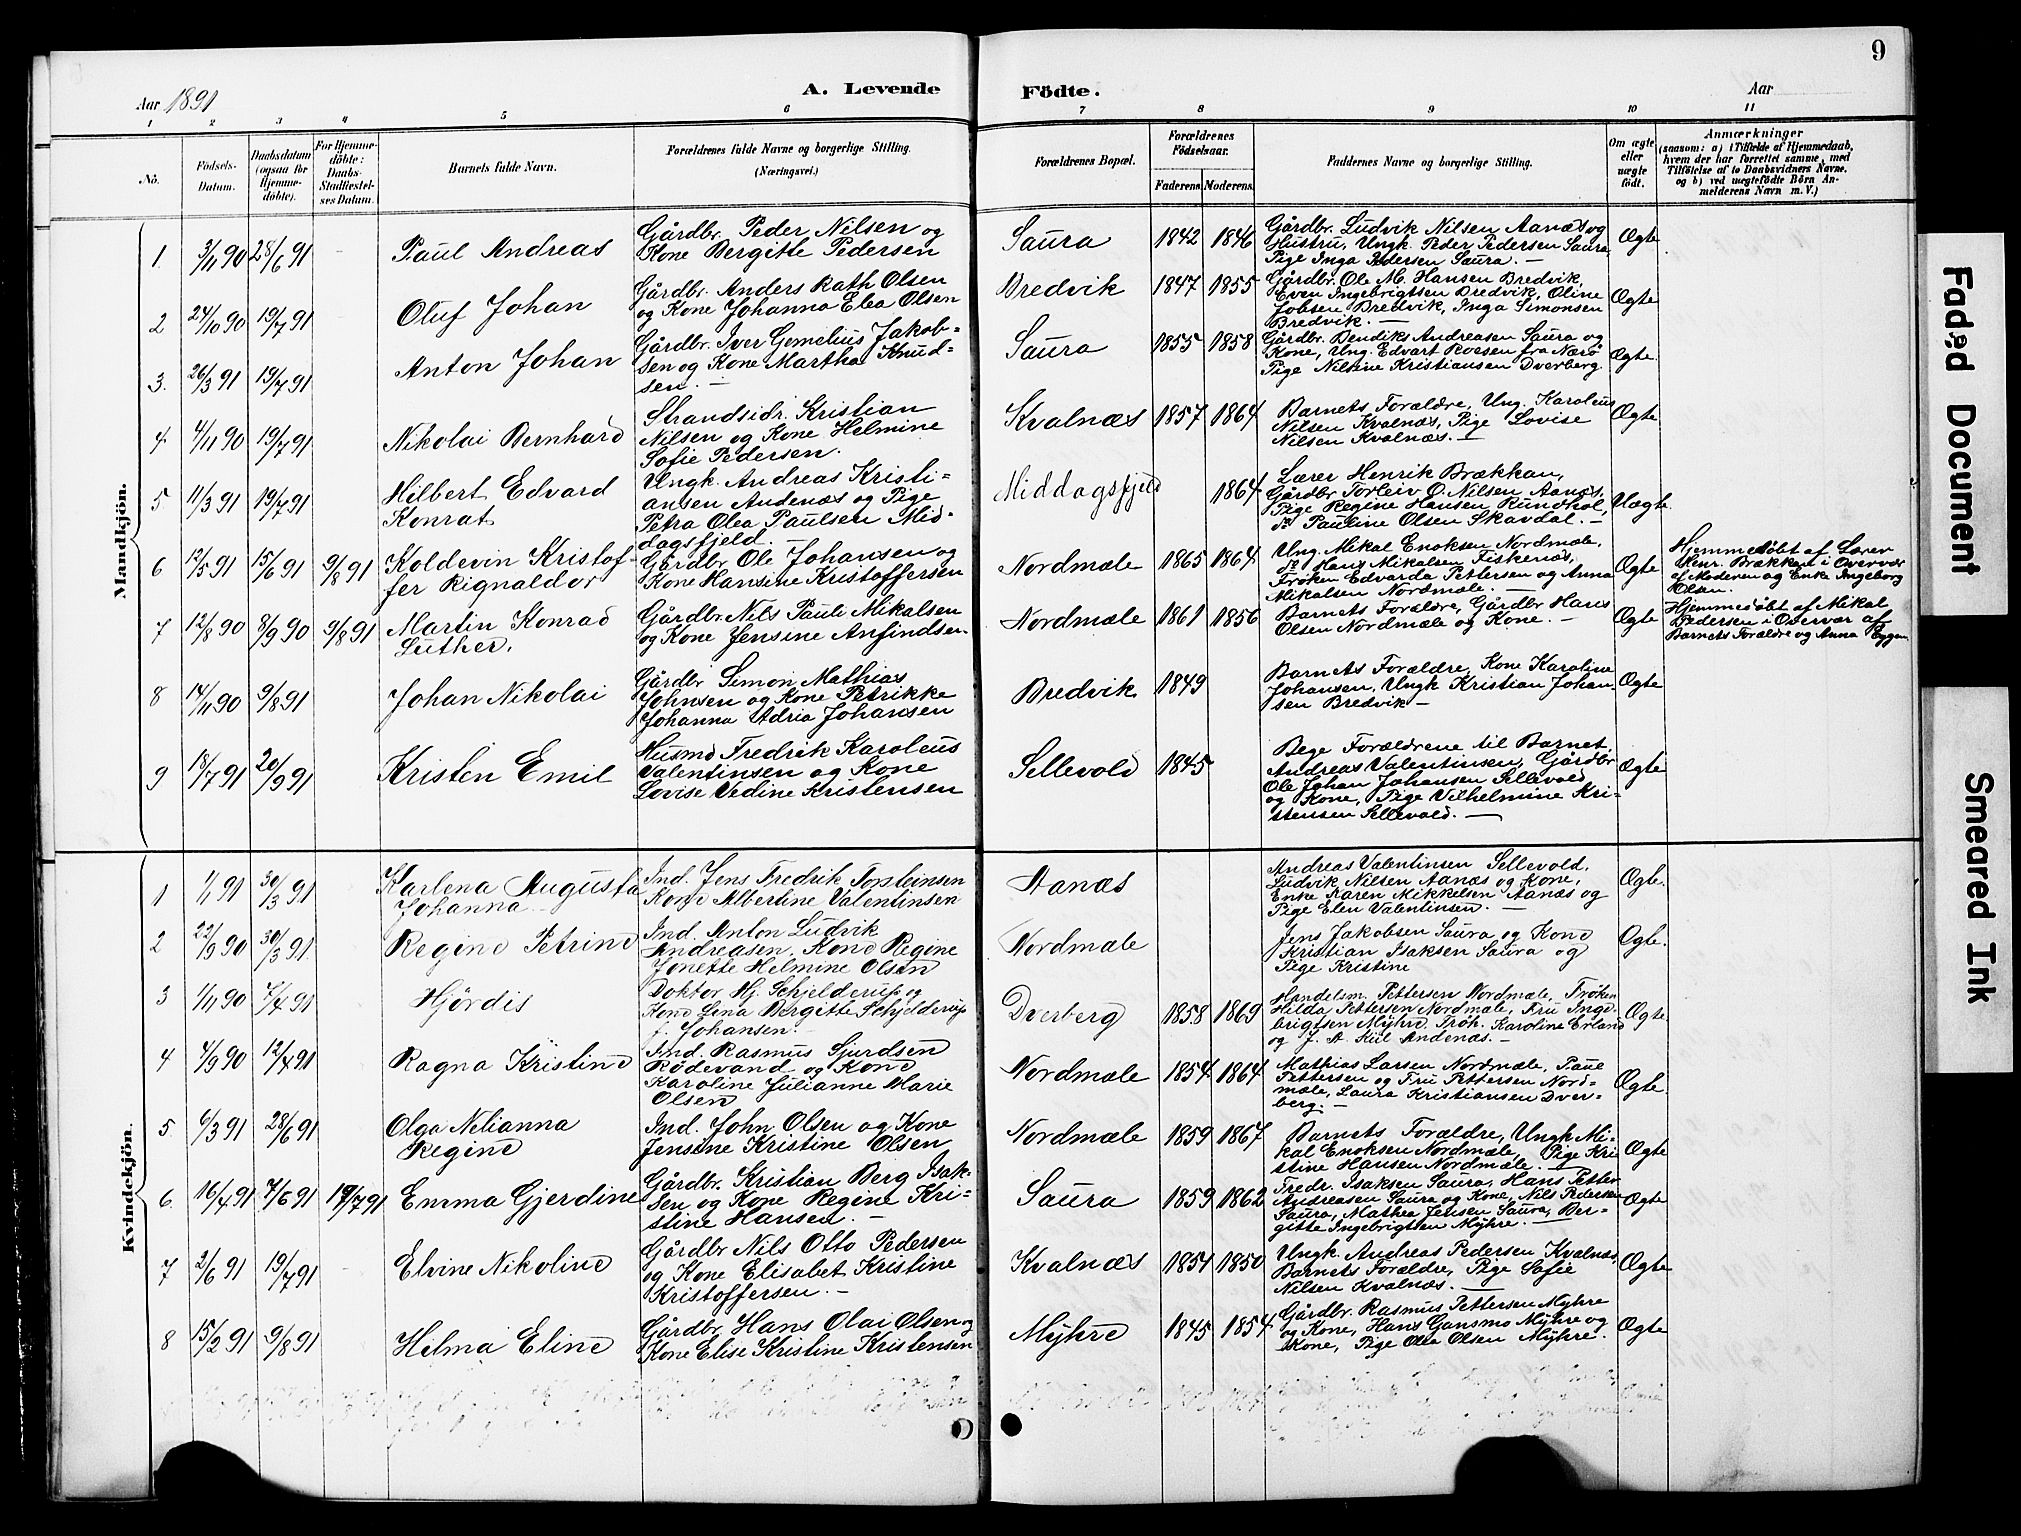 9
Aar 1891
A. Levende
Födte.
Aar
1 2 3 4 5 6 7 8 9 10 11
No.
Födsels-
Datum.
Daabsdatum
(ogsaa for
Hjemme-
döbte).
For Hjemme-
döbte:
Daabs-
Stadfæstel-
ses Datum.
Barnets fulde Navn.
Forældrenes fulde Navne og borgerlige Stilling.
(Næringsvei.)
Forældrenes Bopæl.
Forældrenes
Födselsaar.
Faderens. Moderens.
Faddernes Navne og borgerlige Stilling.
Om ægte
eller
uægte
födt.
Anmærkninger
(saasom: a) i Tilfælde af Hjemmedaab,
hvem der har forrettet samme, med
Tilföielse af to Daabsvidners Navne.
og b) ved uægtefödte Börn An-
melderens Navn m. V.)
Mandkjön.
1. 3/11 90 28/6 91 Paul Andreas
Gårdbr. Peder Nilsen og
Kone Bergitte Pedersen
Saura 1842 1846
Gårdbr. Ludvik Nilsen Aanæs og
Hustru, Ungk. Peder Pedersen Saura
Pige Inga Pedersen Saura. —
Ægte
2 24/10 90 19/7 91 Oluf Johan
Gårdbr. Anders Rath Olsen
og Kone Johanna Elea Olsen
Bredvik 1847 1855
Gårdbr. Ole M. Hansen Bredvik,
Even Ingebrigtsen Bredvik, Oline
Jobsen Bredvik, Inga Simonsen
Bredvik. —
Ægte
3. 26/3 91 19/7 91 Anton Johan
Gårdbr. Iver Cornelius Jakob-
sen og Kone Martha Knud-
sen. —
Saura 1855 1858
Gårdbr. Bendiks Andreasen Saura og
Kone, Ung. Edvart Roesen fra Nærö
Pige Nilsine Kristiansen Dverberg.
Ægte
4 4/11 90 19/7 91 Nikolai Bernhard
Strandsidr. Kristian
Nilsen og Kone Helmine
Sofie Pedersen.
Kvalnæs 1857 1864
Barnets Forældre, Ung. Karoleus
Nilsen Kvalnæs, Pige Lovise
Nilsen Kvalnæs. —
Ægte
5 11/3 91 19/7 91 Hilbert Edvard
Konrat
Ungk. Andreas Kristi-
ansen Andenæs og Pige
Petra Olea Paulsen Mid-
dagsfjeld. —
Middagsfjeld 1864
Lærer Henrik Brækkan,
Gårdbr Torleiv O. Nilsen Aanæs,
Pige Regine Hansen Rundhol,
do Pauline Olsen Skavdal. —
Uægte
6 12/5 91 15/6 91 9/8 91 Koldevin Kristof-
fer Rignaldor
Gårdbr. Ole Johansen og
Kone Hansine Kristoffersen
Nordmæle 1865 1864
Ung. Mikal Enoksen Nordmæle,
do Hans Mikalsen Fiskenæs,
Frøken Edvarda Pettersen og Anna
Mikalsen Nordmæle. —
Ægte
Hjemmedøbt af Lærer
Henr. Brækkan i Overvær
af Moderen og Enke Ingeborg
Olsen.
7 12/8 90 8/9 90 9/8 91 Martin Konrad
Luther.
Gårdbr. Nils Pauli Mikalsen
og Kone Jensine Anfindsen
Nordmæle 1861 1856
Barnets Forældre, Gårdbr Hans
Olsen Nordmæle og Kone. —
Ægte
Hjemmedøbt af Mikal
Pedersen i Overvær af
Barnets Forældre og Anna Eggen
8 14/11 90 9/8 91 Johan Nikolai
Gårdbr Simon Mathias
Johnsen og Kone Petrikke
Johanna Adria Johansen
Bredvik 1849
Barnets Forældre, Kone Karoline
Johansen, Ungk Kristian Johan-
sen Bredvik —
Ægte
9 18/7 91 20/9 91 Kristen Emil
Husmd Fredrik Karoleus
Valentinsen og Kone
Lovise Vedine Kristensen
Sellevold 1845
Bege Forældrene til Barnet,
Andreas Valentinsen, Gårdbr
Ole Johan Johansen Sellevold
og Kone, Pige Vilhelmine Kri-
stensen Sellevold. —
Ægte
Kvindekjön.
1 1/1 91 30/3 91 Karlena Augusta
Johanna —
Ind. Jens Fredrik Torsteinsen
Kone Albertine Valentinsen
Aanæs
Andreas Valentinsen Sellevold.
Ludvik Nilsen Aanæs og Kone,
Enke Karen Mikkelsen Aanæs og
Pige Elen Valentinsen. —
Ægte.
2 22/9 90 30/3 91. Regine Petrine
Ind. Anton Ludvik
Andreasen, Kone Regine
Jonette Helmine Olsen
Nordmæle
Jens Jakobsen Saura og Kone
Kristian Isaksen Saura og
Pige Kristine
Ægte.
3 1/11 90 7/4 91 Hjördis
Doktor Hj. Schjelderup og
Kone Lina Bergitte Schjelderup
f. Johansen. —
Dverberg 1858 1869
Handelsm. Pettersen Nordmæle, Frøken
Hilda Pettersen Nordmæle, Fru Inge-
brigtsen Myhre, Frøk. Karoline Erland
og J. A. Kiil Andenæs. —
Ægte
4 4/9 90 12/4 91 Ragna Kristine
Ind. Rasmus Sjurdsen
Rödevand og Kone
Karoline Julianne Marie
Olsen
Nordmæle 1854 1864
Mathias Larsen Nordmæle, Paul
Pettersen og Fru Pettersen Nord-
mæle, Laura Kristiansen Dver-
berg. —
Ægte.
5. 6/3 91 28/6 91 Olga Nelianna
Regine
Ind. John Olsen og Kone
Jensine Kristine Olsen
Nordmæle 1859 1867
Barnets Forældre, Ungk Mi-
kal Enoksen Nordmæle, Pige Kri
stine Hansen Nordmæle. —
Ægte
6. 16/4 91 7/6 91 19/7 91 Emma Gjerdine
Gårdbr. Kristian Berg Isak-
sen og Kone Regine Kri-
stine Hansen. —
Saura 1859 1862
Fredr. Isaksen Saura, Hans Petter
Andreasen Saura og Kone, Nils Pedersen
Saura, Mathea Jensen Saura, Ber-
gitte Ingebrigtsen Myhre. —
Ægte
7 2/6 91 19/7 91 Elvine Nikoline
Gårdbr Nils Otto Pedersen
og Kone Elisabet Kristine
Kristoffersen. —
Kvalnæs 1854 1850
Ungk. Andreas Pedersen Kvalnæs,
Barnets Forældre, Pige Sofie
Nilsen Kvalnæs. —
Ægte
8 15/2 91 9/8 91 Helma Eline
Gårdbr Hans Olai Olsen og
Kone Elise Kristine Kristensen
Myhre 1845 1854
Gårdbr. Rasmus Pettersen Myhre
og Kone, Hans Gansmo Myhre og
Kone, Pige Olea Olsen Myhre.
Ægte
Faded Document
Smeared Ink